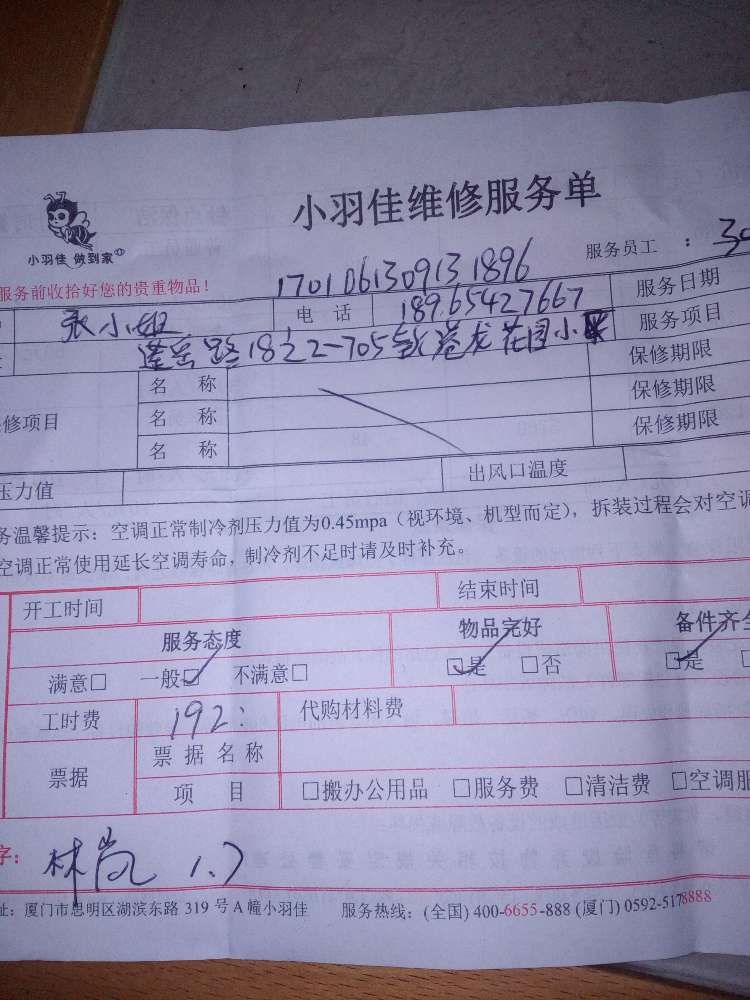 小羽佳维修服务单
小羽佳 做到家
服务员工 ：
170106130913 1896
服务前收拾好您的贵重物品！
张小姐 电 话 18965427667 服务日期
莲岳路18之2-705 港龙花园小区 服务项目
名 称 保修期限
修项目 名 称 保修期限
名 称 保修期限
压力值 出风口温度
务温馨提示：空调正常制冷剂压力值为0.45mpa（视环境、机型而定），拆装过程会对空调
空调正常使用延长空调寿命，制冷剂不足时请及时补充。
开工时间 结束时间
服务态度 物品完好 备件齐全
满意□ 一般☑ 不满意□ ☑是 □否 ☑是
工时费 192： 代购材料费
票据 票 据 名 称
项 目 □搬办公用品 □服务费 □清洁费 □空调服
字： 林 1.7
址：厦门市思明区湖滨东路 319 号 A 幢小羽佳 服务热线：(全国) 400-6655-888 (厦门) 0592-5178888